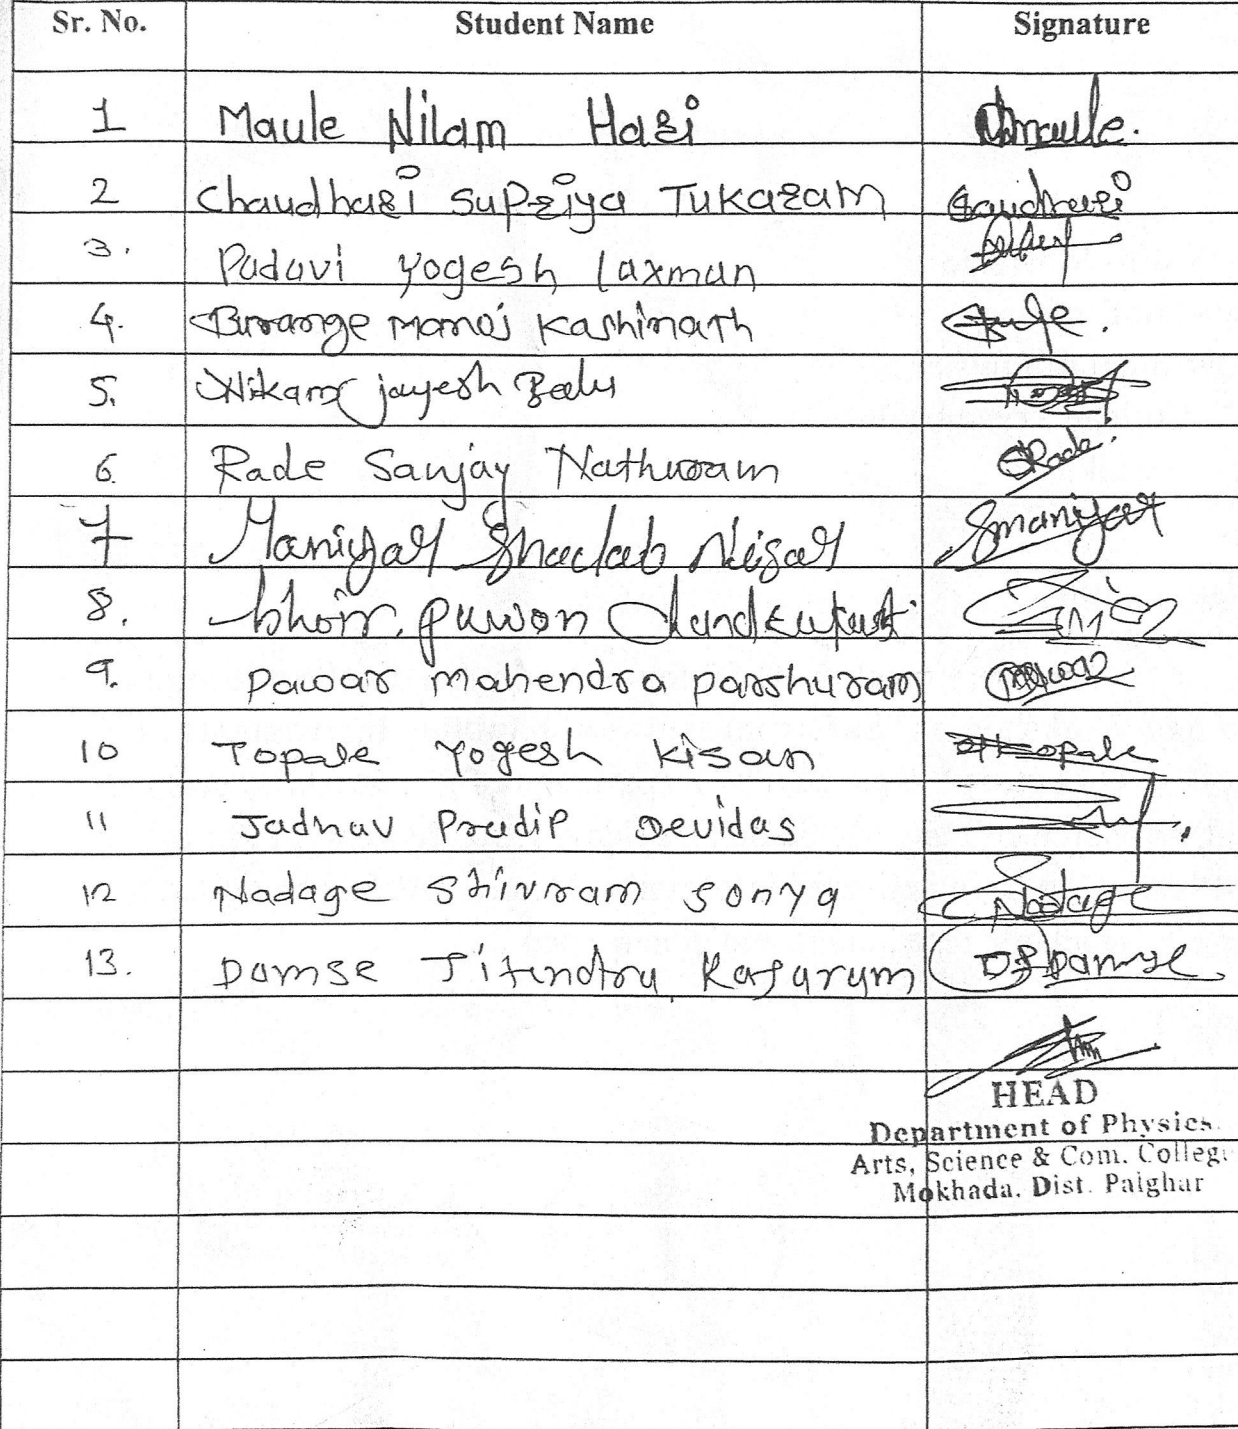 Sr. No. Student Name Signature
1 Maule Nilam Hari Maule.
2 Chaudhari Supriya Tukaram Caudhari
3. Padavi Yogesh Laxman
4. Burange Manoj Kashinath
5. Nikam Jayesh Balu
6. Rade Sanjay Nathuram Rade.
7 Maniyar Shadab Nisar Smaniyar
8. bhoir. pawan
9. Pawar Mahendra Parshuram Pawar
10 Topale Yogesh Kisan Topale
11 Jadhav Pradip Devidas
12 Nadage Shivram Sonya Nadage
13. Damse Jitendra Rajaram Damse
HEAD
Department of Physics.
Arts, Science & Com. College
Mokhada. Dist. Palghar